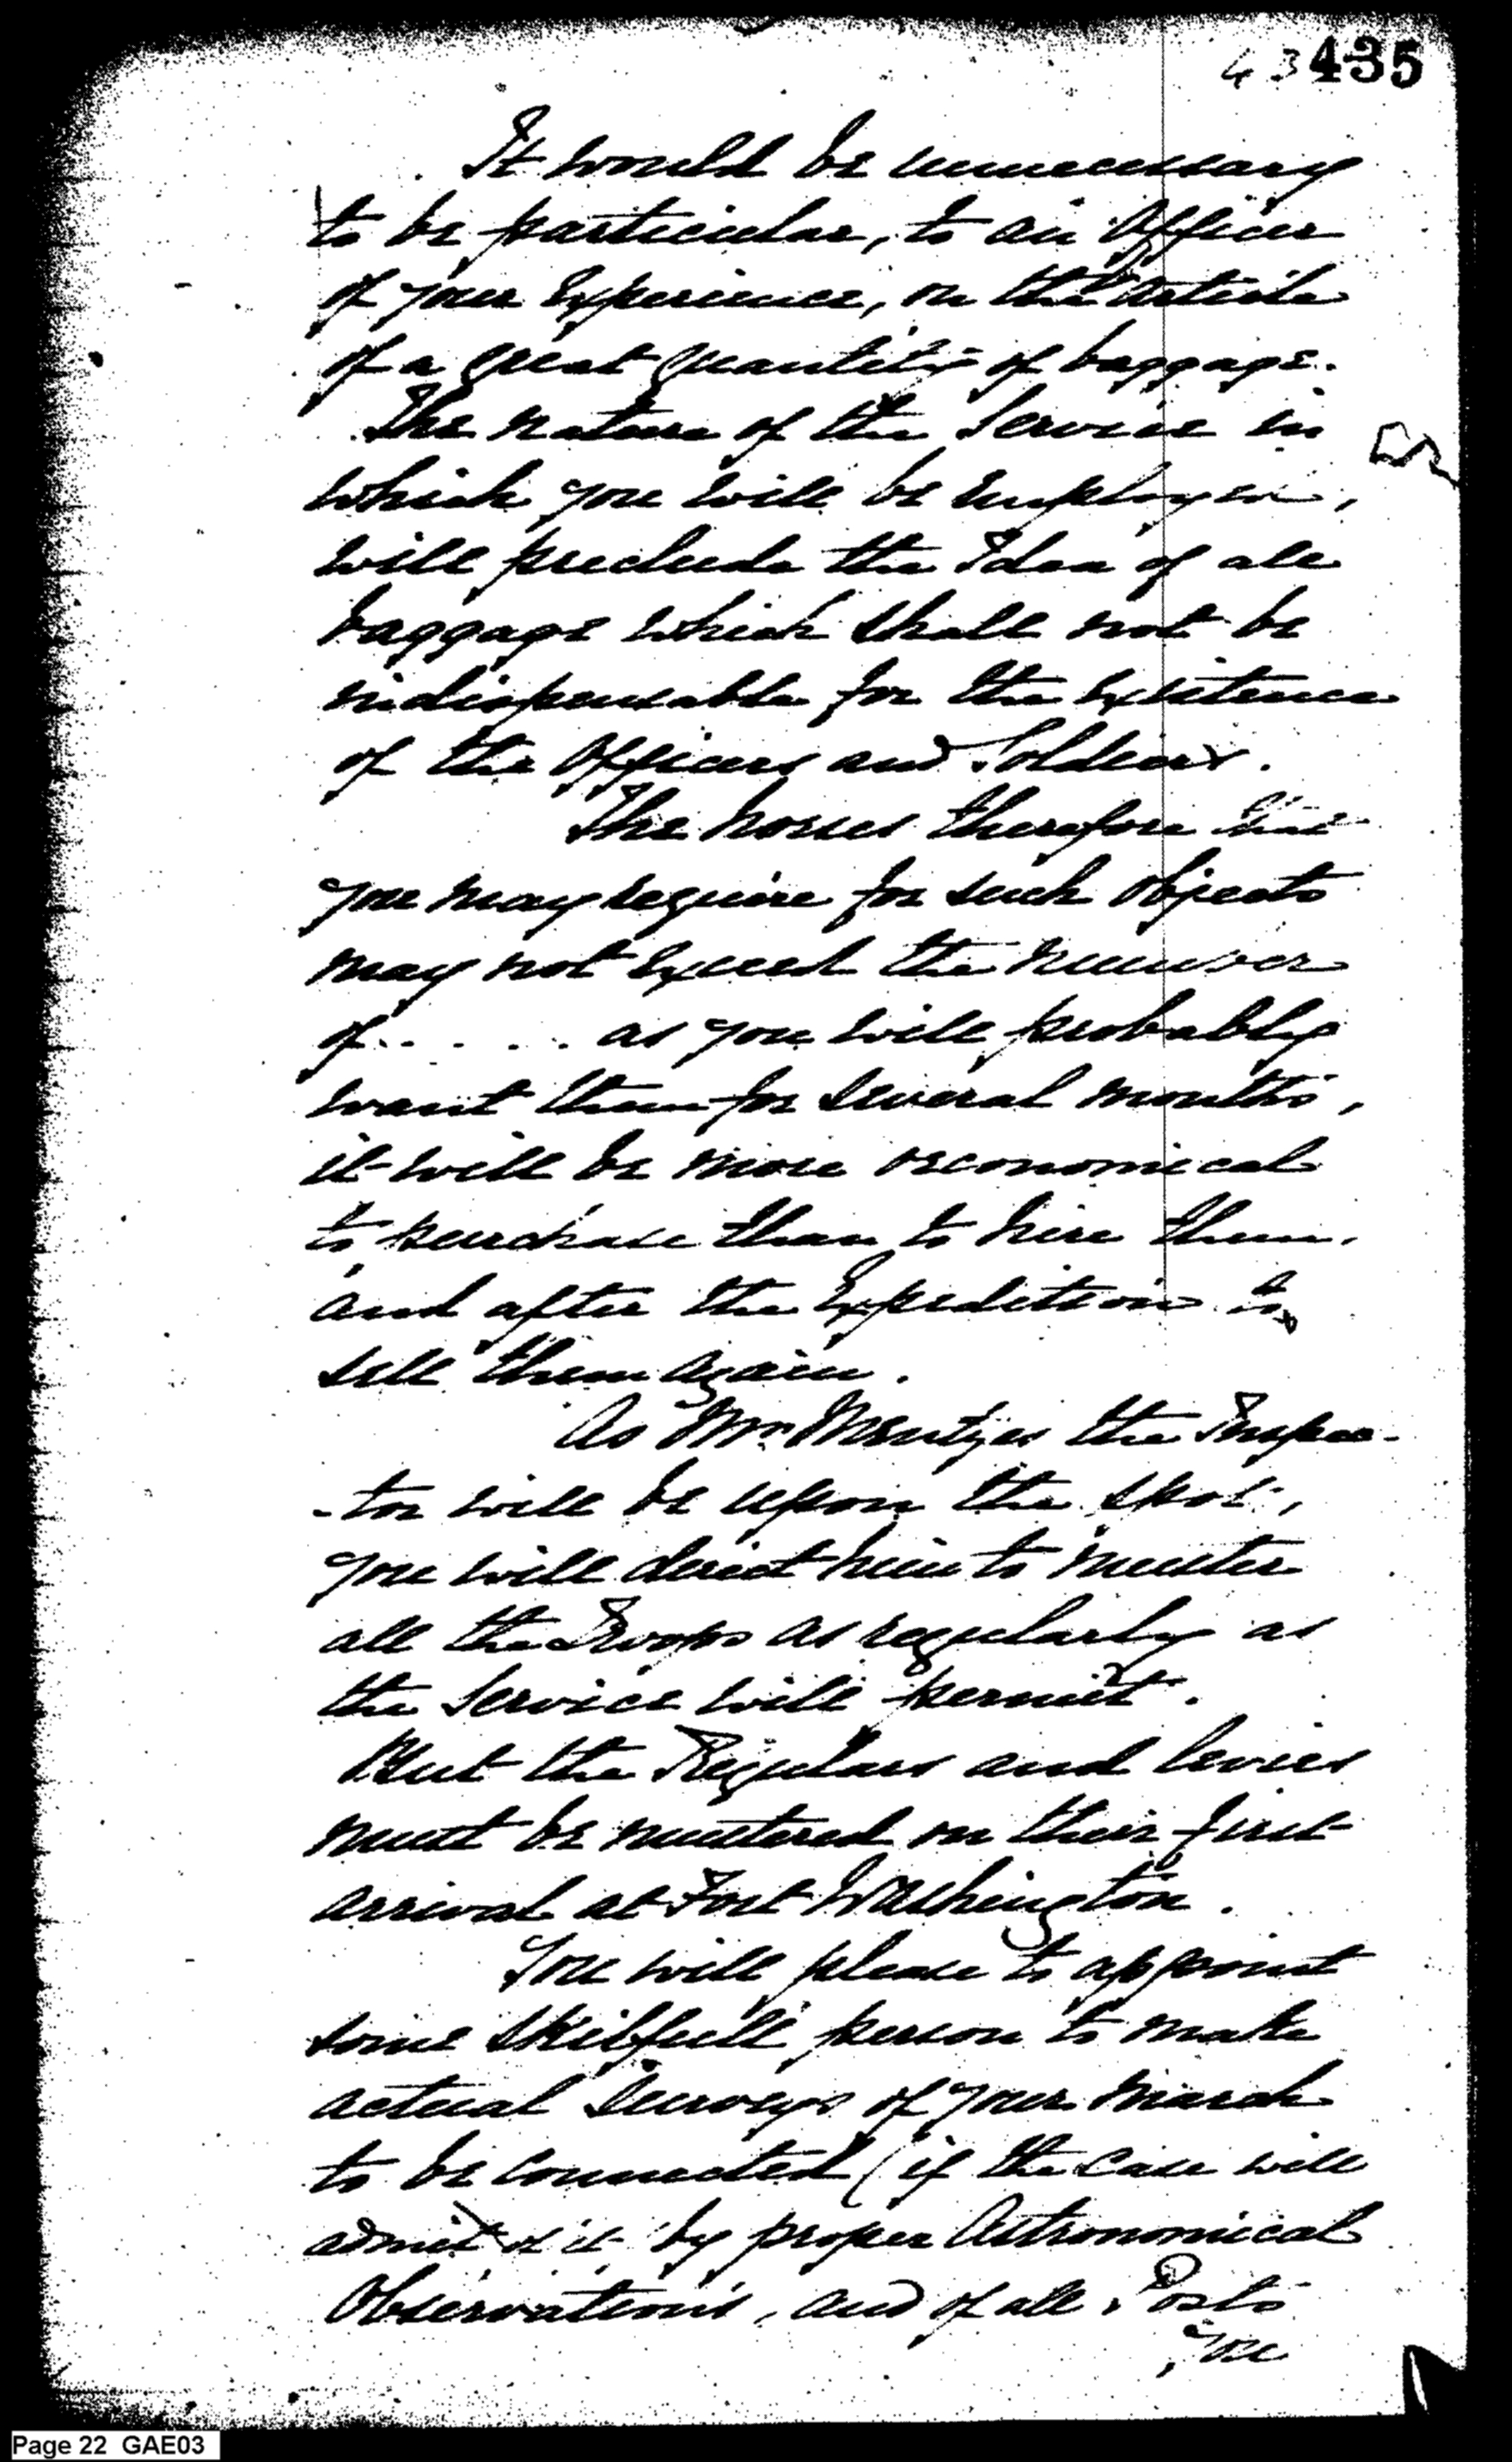 43 435
It would be unnecessary
to be particular, to an Officer
of your Experience, on the Article
of a great quantity of baggage.
The nature of the Service in
which you will be Employed,
will preclude the Idea of all
baggage which shall not be
indispensable for the Existence
of the Officers and Soldiers.
The horses therefore that
you may require for such objects
may not Exceed the number
of . . . . . as you will probably
want them for several months,
it will be more oeconomical
to purchase than to hire them.
and after the Expedition to
sell them again.
As Mr. Mentzes the Inspec-
-tor will be upon the spot,
you will direct him to muster
all the Troops as regularly as
the Service will permit.
But the Regulars and levies
must be mustered on their first
arrival at Fort Washington.
You will please to appoint
some skilfull person to make
actual Surveys of your march
to be connected (if the case will
admit of it by proper Astronomical
Observations, and of all Posts
you
Page 22 GAE03